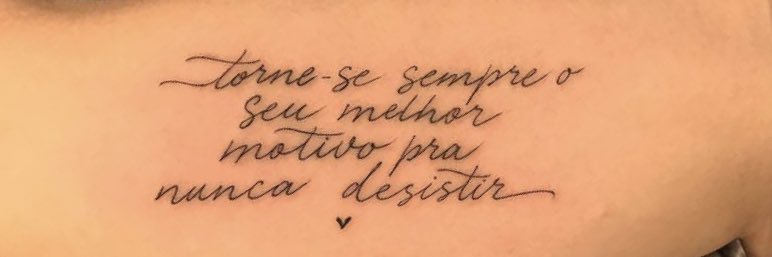 torne-se sempre o
seu melhor
motivo pra
nunca desistir